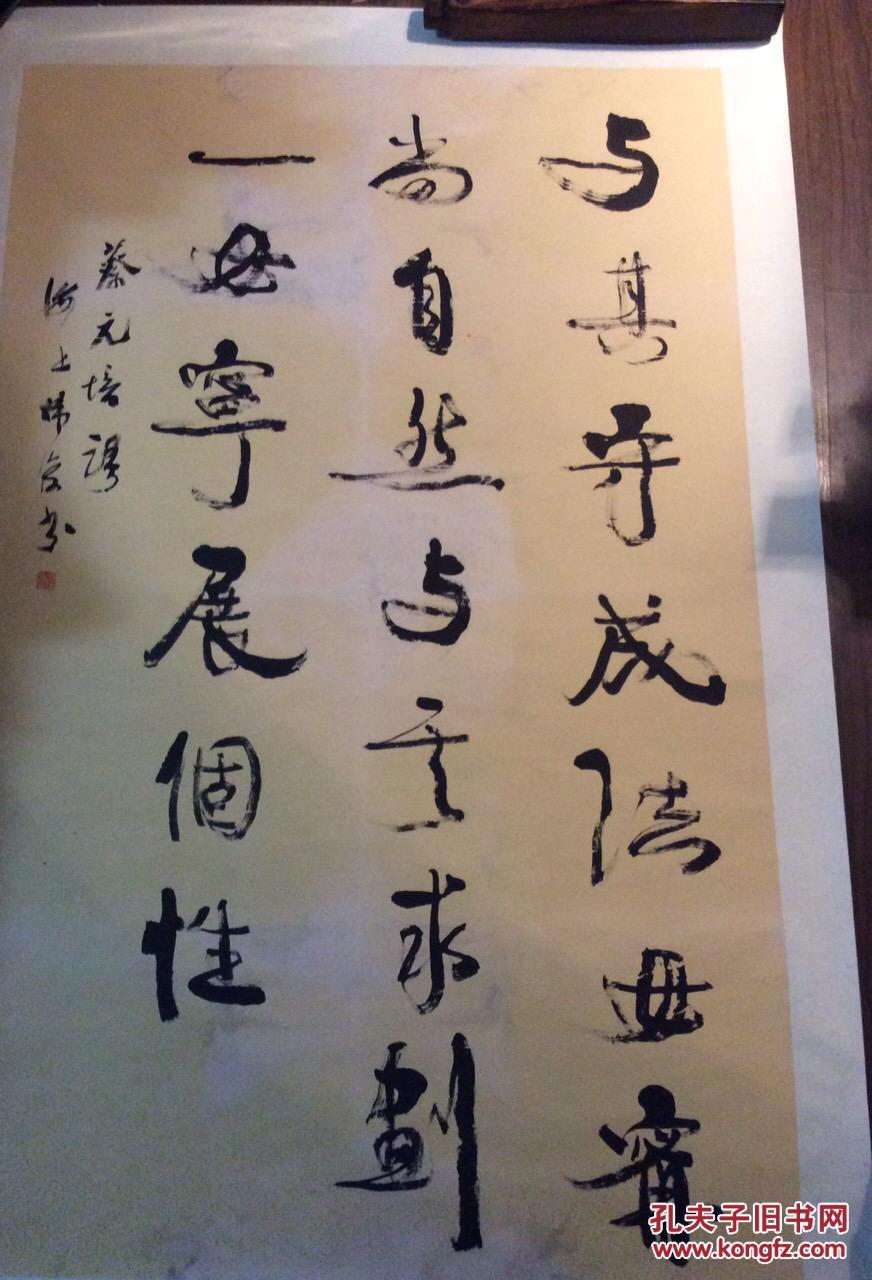 与其守成法毋甯
尚自然与其求劃
一毋寧展個性
蔡元培語
海上
書
孔夫子旧书网
www.kongfz.com